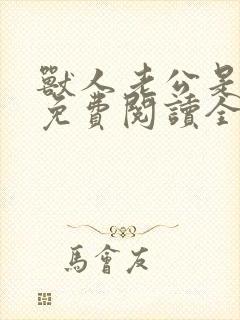 獸人老公是
免費閱讀全
馬會友